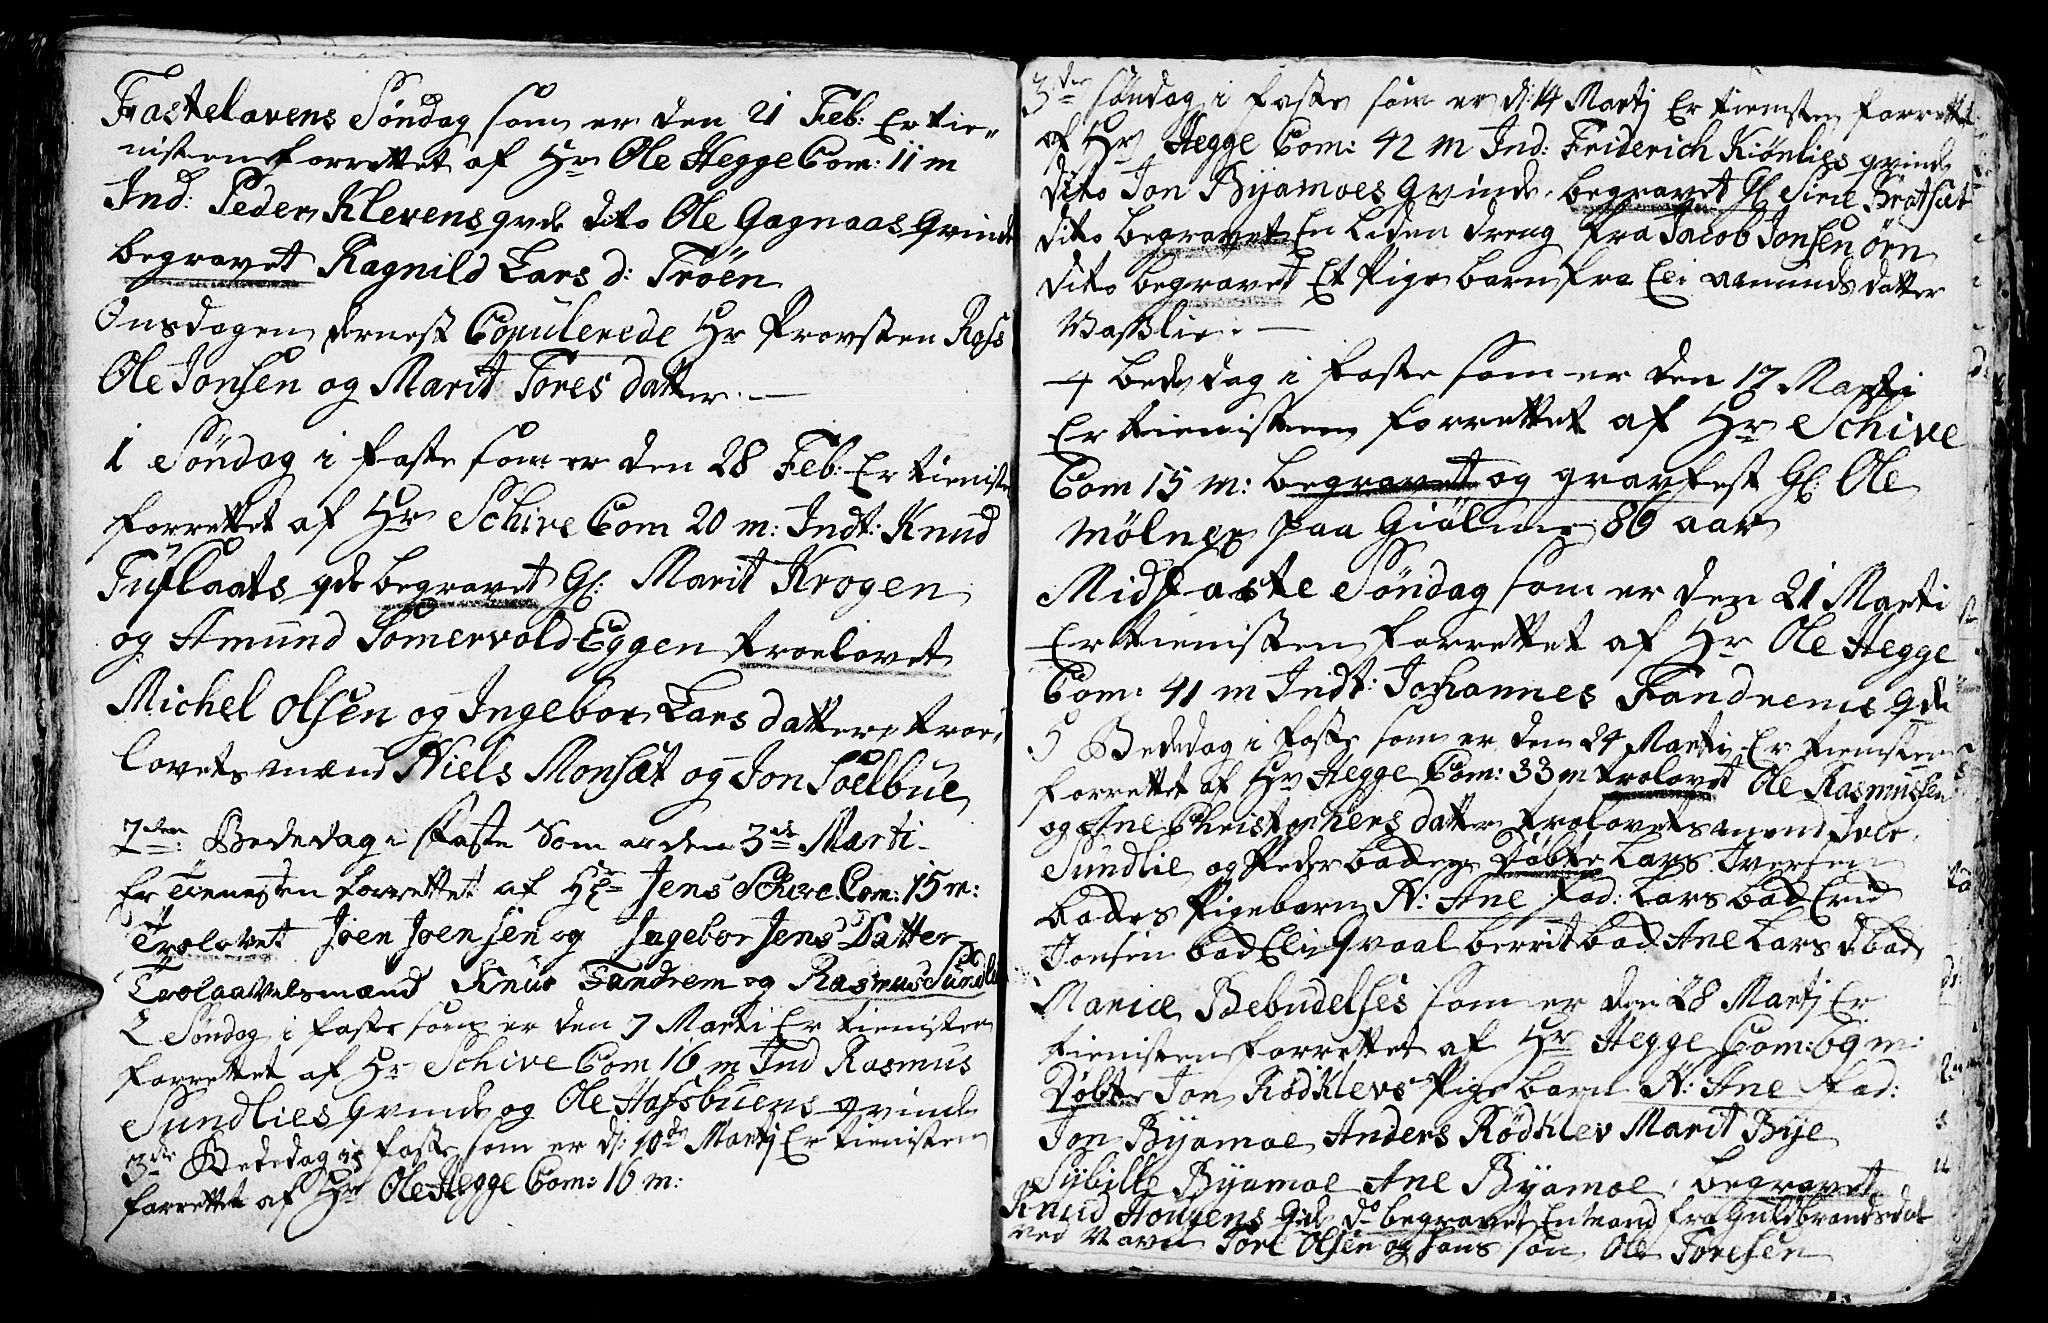 Fastelavens Søndag som er den 21 Feb: Er tie-
nisten forrettet af Hr Ole Hegge Com: 11 m
Ind: Peder Klevens qvde dito Ole Gagnaas Qvinde
begravet Ragnild Lars d: Trøen
Onsdagen dernest Copulerede Hr Provsten Ross
Ole Jonsen og Marit Tores datter.
1 Søndag i faste som er den 28 Feb: Er tieniste
forrettet af Hr Schive Com 20 m: Indt: Knud
qde begravet Gl: Marit Krogen
og Amund Somervold Eggen troelovet
Michel Olsen og Ingebor Lars datter troe-
lovets mænd Niels Monsæt og Jon Soelbue
2den Bededag i faste Som er den 3de Marti
Er Tienesten forrettet af Hr Jens Schive Com: 15 m:
Trolovet Joen Joensen og Ingebor Jens Datter
Trolaavelsmænd Knud Fandrem og Rasmus Sundli
2 Søndag i faste som er den 7 Marti Er tienisten
forrettet af Hr Schive Com 16 m Ind Rasmus
Sundlies Qvinde og Ole Hassbuens qvinde
3die Bededag i faste som er d: 10de Martj Er tienisten
forrettet af Hr Ole Hegge Com: 16 m:
3die søndag i faste som er d: 14 Martj Er tienisten forrettet
af Hr Hegge Com: 42 m Ind: Friderich Kiønligs qvinde
dito Jon Byamoes Qvinde. begravet Gl Siri Bratsæt
dito begravet En liden dreng fra Jacob Jonsen ørn
dito begravet Et Pige barn fra Eli Amunds datter
Vasslie.
4 bededag i faste som er den 17 Marti
Er tienisten forrettet af Hr Schive
Com 15 m: begravet og gravfest Gl: Ole
Mølner paa Giølme 86 aar
Midfaste Søndag som er den 21 Marti
Er tienisten forrettet af Hr Ole Hegge
Com: 41 m Indt: Johannes Fandrems Qde
5 Bededag i faste som er den 24 Martj Er tienisten
forrettet af Hr Hegge Com: 33 m trolovet Ole Rasmussen
og Ane Christophers datter trolovets mend Iver
Sundlie og Peder baden Døbte Lars Iversen
bades Pigebarn N: Ane fad: Lars bad Erid
Jonsen bad Eli Qvaal berrit bad Ane Lars d bad
Mariæ Bebudelses som er den 28 Martj Er
tienisten forrettet af Hr Hegge Com: 69 m:
Døbte Jon Rødklevs Pige barn N: Ane fad:
Jon Byamoe Anders Rødklev Marit Bye
Sybille Byamoe Ane Byamoe. begravet
Knud Houvens Qde do begravet En mand fra Guldbrandsdal
ved Navn Tore Olsen og hans søn Ole Toresen